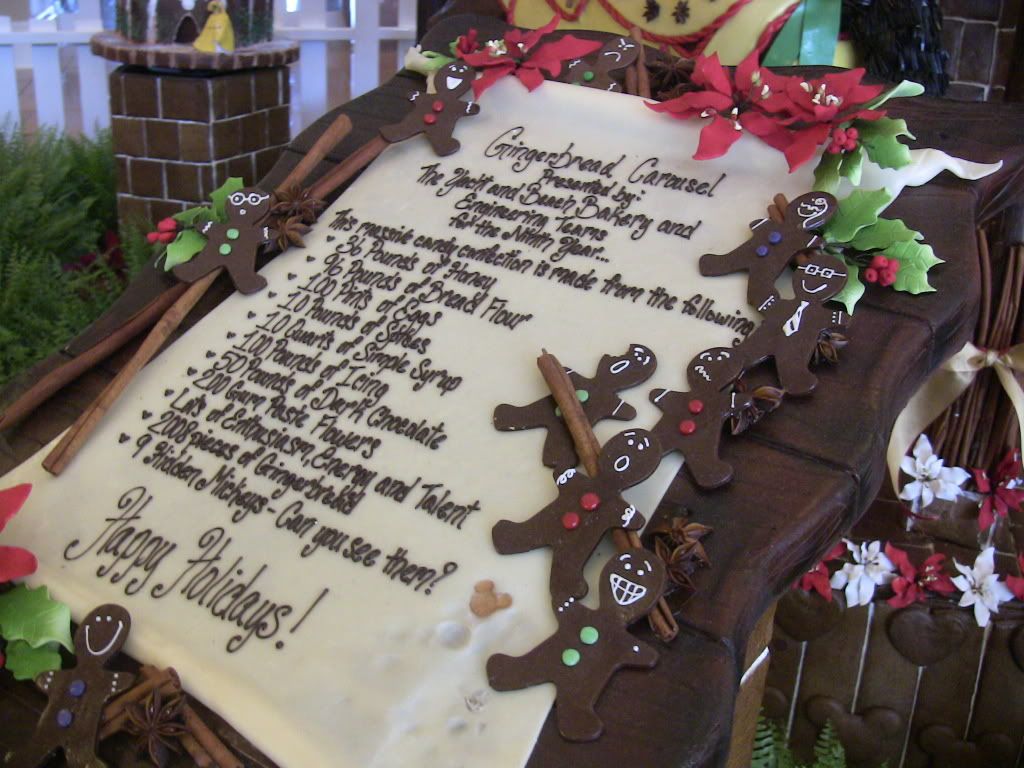 Gingerbread Carousel
Presented by:
The Yacht and Beach Bakery and
Engineering Teams
for the Ninth Year...
This massive candy confection is made from the following
♥ 36 Pounds of Honey
♥ 96 Pounds of Bread Flour
♥ 100 Pints of Eggs
♥ 10 Pounds of Spices
♥ 10 Quarts of Simple Syrup
♥ 100 Pounds of Icing
♥ 50 Pounds of Dark Chocolate
♥ 200 Gum Paste Flowers
♥ Lots of Enthusiasm, Energy and Talent
♥ 2008 pieces of Gingerbread
♥ 9 Hidden Mickeys - Can you see them?
Happy Holidays!